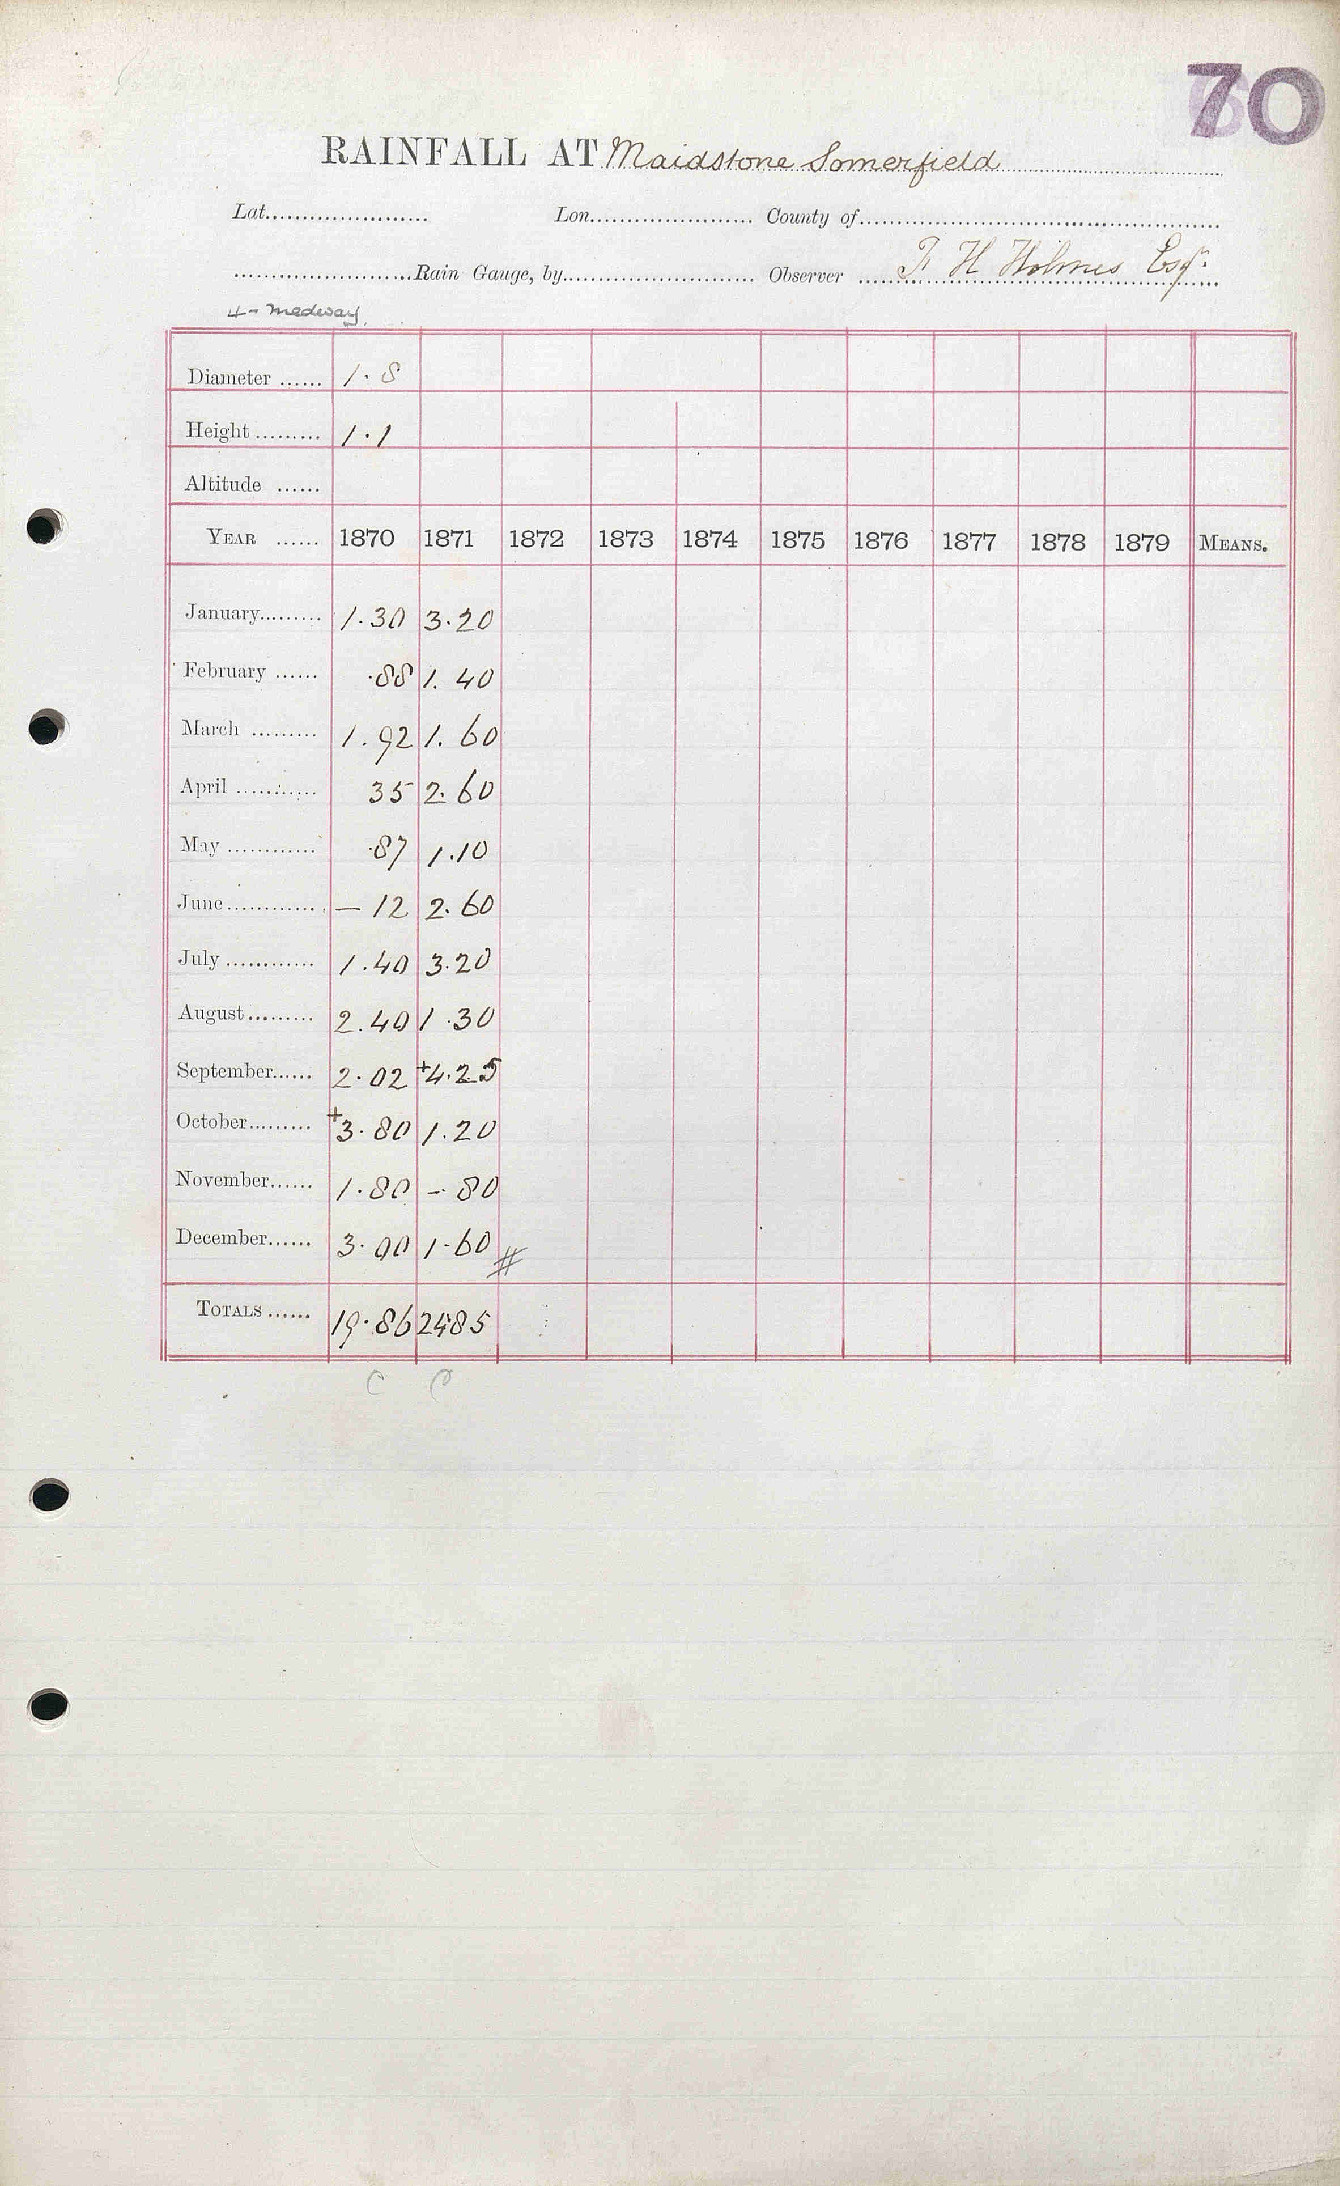 70
RAINFALL AT Maidstone Somerfield
Lat...................... Lon...................... County of......................
......................Rain Gauge, by...................... Observer ...... T H Holmes Esqr.
4 - Medway
Diameter ...... 1.8
Height ......... 1.1
Altitude ......
YEAR ...... 1870 1871 1872 1873 1874 1875 1876 1877 1878 1879 MEANS.
January......... 1.30 3.20
February ...... .88 1.40
March ......... 1.92 1.60
April ............ 35 2.60
May ............ .87 1.10
June............. — 12 2.60
July ............ 1.40 3.20
August......... 2.40 1.30
September...... 2.02 +4.25
October......... +3.80 1.20
November...... 1.80 - 80
December...... 3.00 1.60 #
TOTALS ...... 19.86 24.85
C C